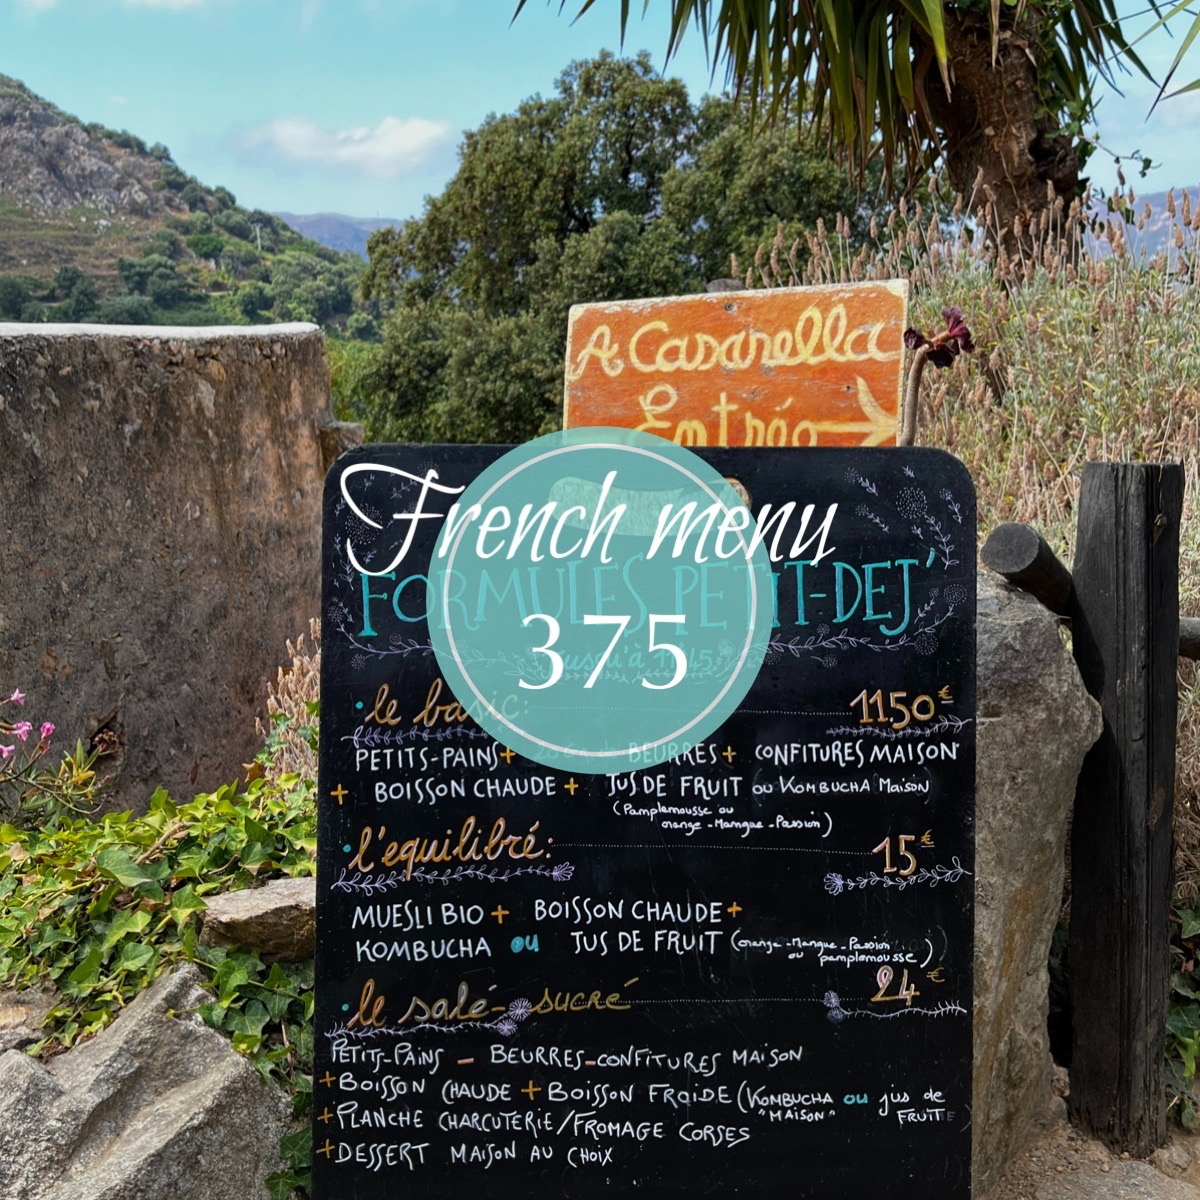 A Casarella
Entrée
French menu
FORMULES PETIT-DEJ'
375
Jusqu'à 11h45
• le basic: 11.50€
PETITS-PAINS + BEURRES + CONFITURES MAISON
+ BOISSON CHAUDE + JUS DE FRUIT ou KOMBUCHA MAISON
(Pamplemousse ou
orange-Mangue-Passion)
• l'equilibré: 15€
MUESLI BIO + BOISSON CHAUDE +
KOMBUCHA ou JUS DE FRUIT (orange-Mangue-Passion
ou pamplemousse)
• le salé-sucré 24€
PETITS-PAINS - BEURRES-CONFITURES MAISON
+ BOISSON CHAUDE + BOISSON FROIDE (KOMBUCHA ou jus de
"MAISON" FRUIT
+ PLANCHE CHARCUTERIE/FROMAGE CORSES
+ DESSERT MAISON AU CHOIX